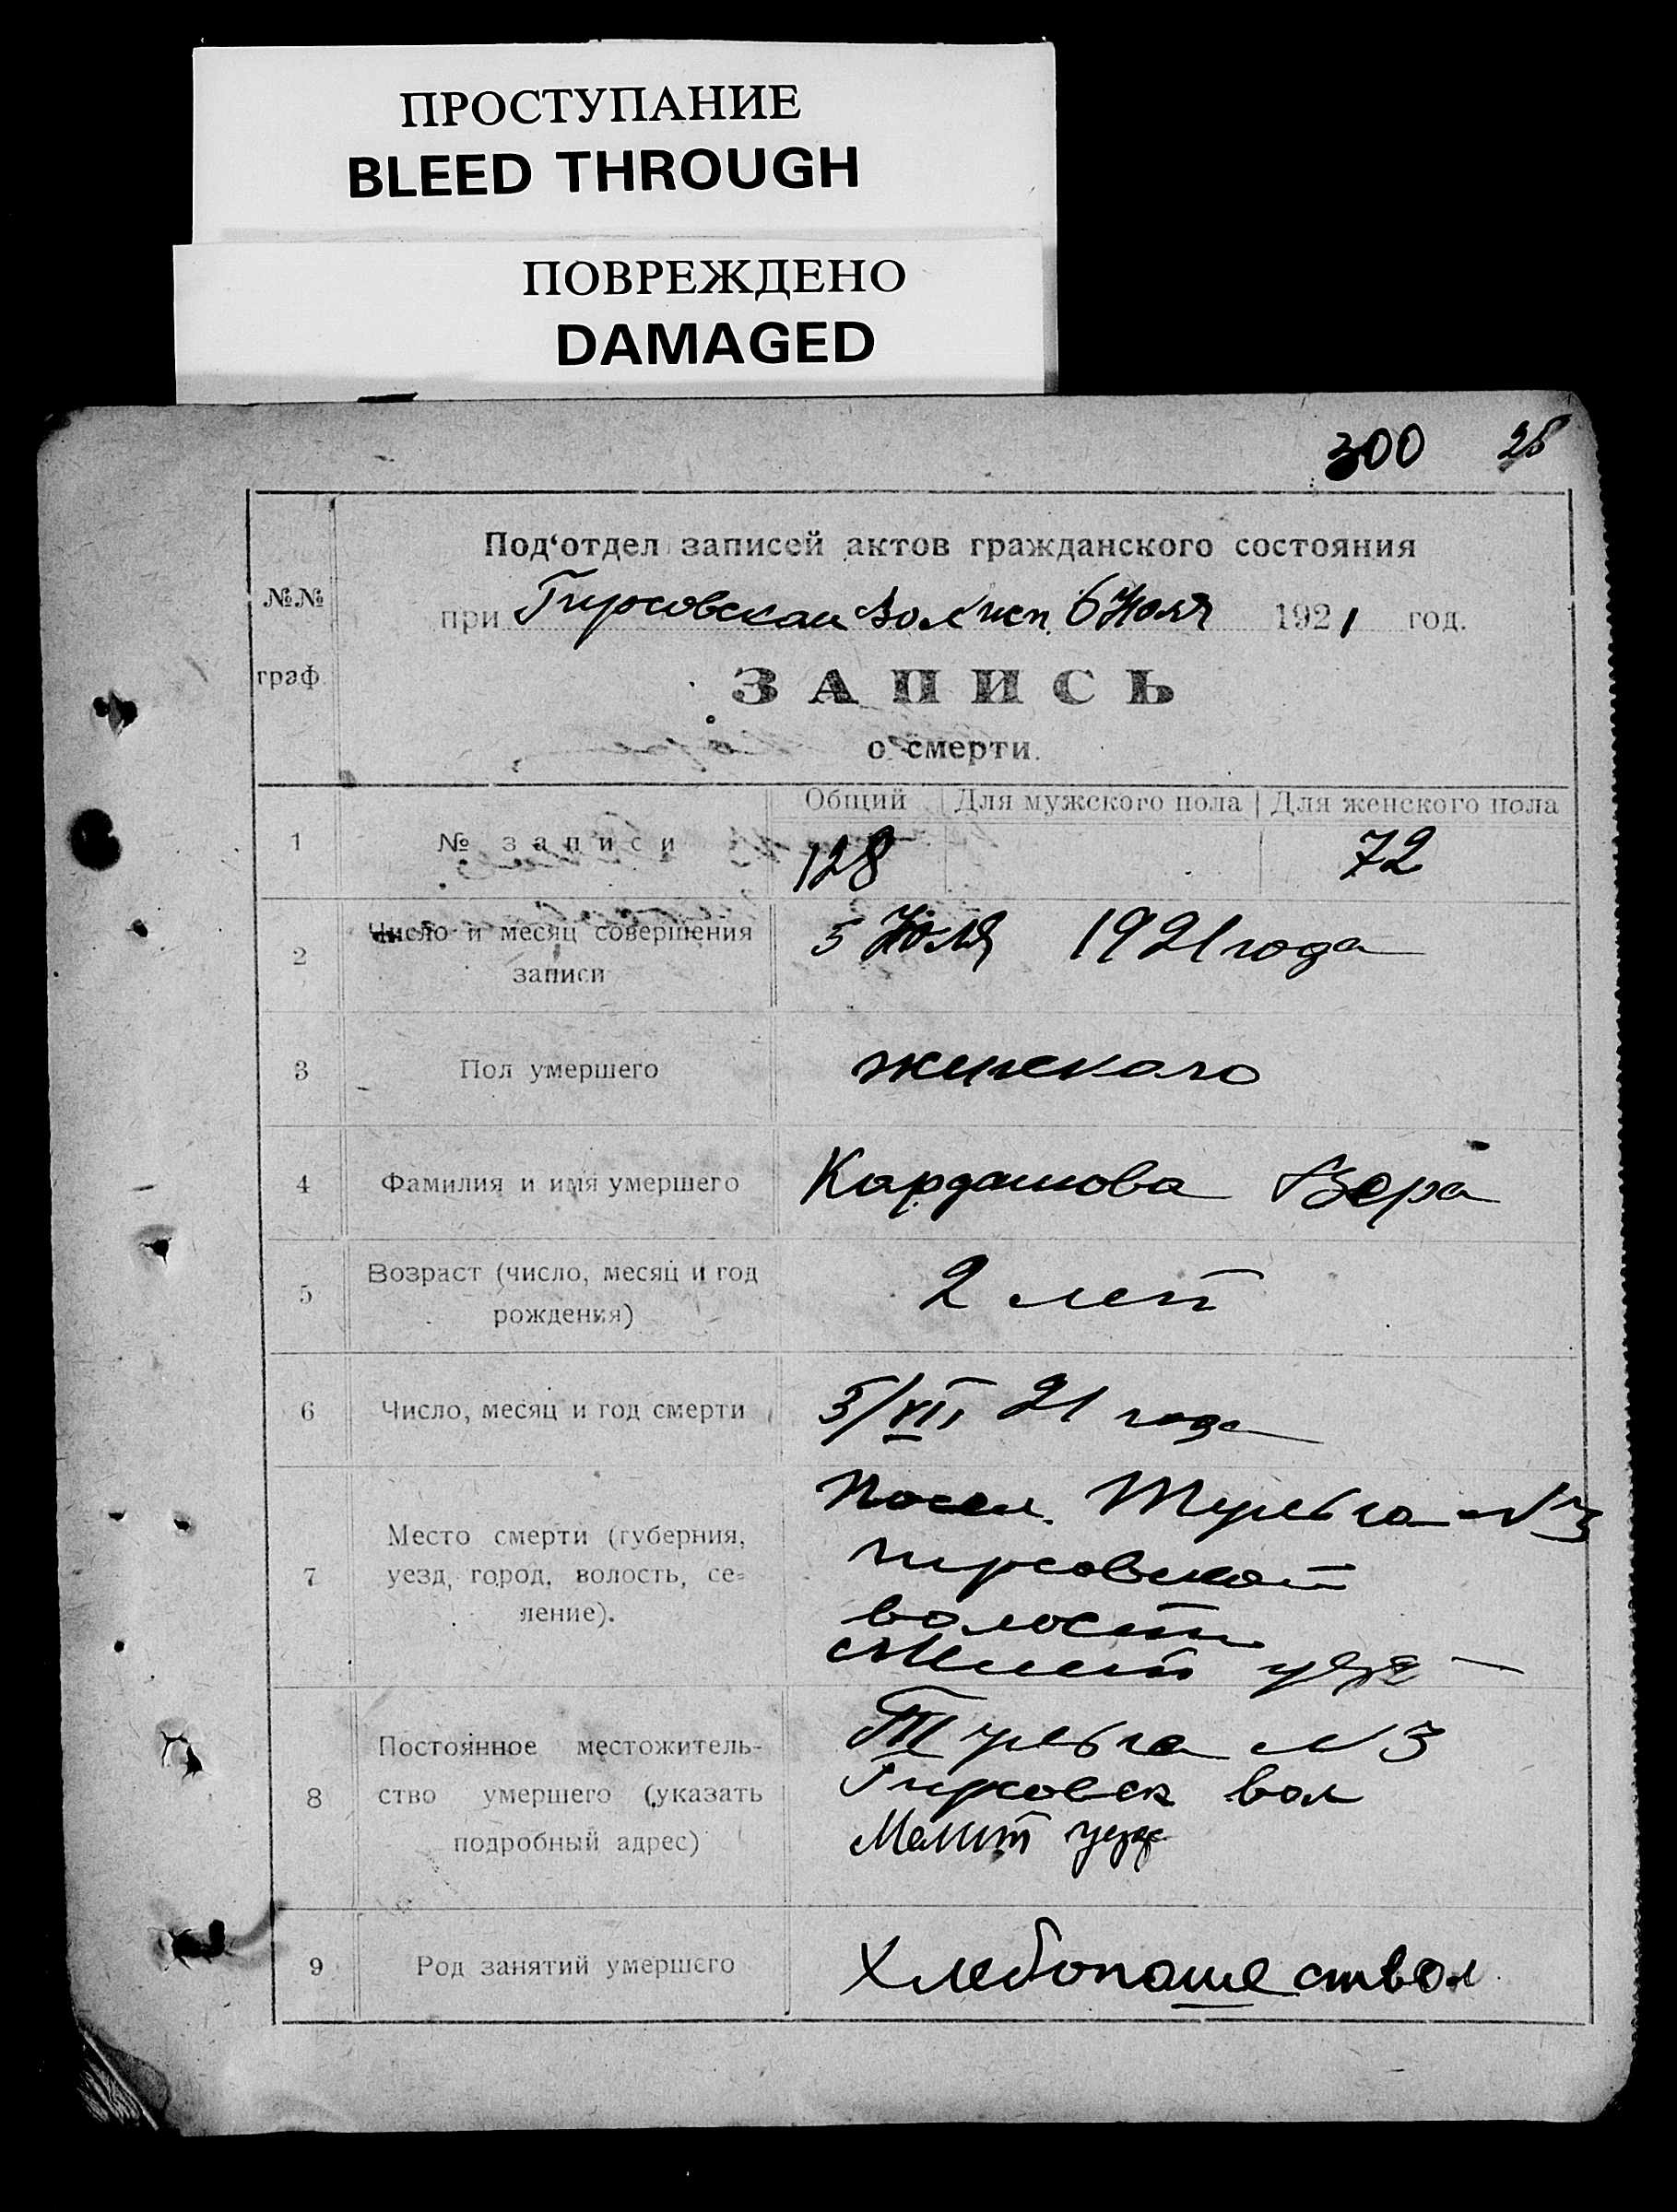 ПРОСТУПАНИЕ
BLEED THROUGH
ПОВРЕЖДЕНО
DAMAGED
300 28
Под‘отдел записей актов гражданского состояния
№№
при Гирсовском Вол исп. 6 Июля 1921 год.
граф.
ЗАПИСЬ
о смерти.
Общий Для мужского пола Для женского пола
1 № записи 128 72
2 Число и месяц совершения 5 Июля 1921 года
записи
3 Пол умершего женского
4 Фамилия и имя умершего Кардашова Вера
5 Возраст (число, месяц и год 2 лет
рождения)
6 Число, месяц и год смерти 5/VII 21 года
7 Место смерти (губерния, Посел. №3
уезд, город, волость, се- гирсовской
ление). волости
Мелит уезд
8 Постоянное местожитель- №3
ство умершего (указать Гирсовск вол
подробный адрес) Мелит уезд
9 Род занятий умершего Хлебопашеством